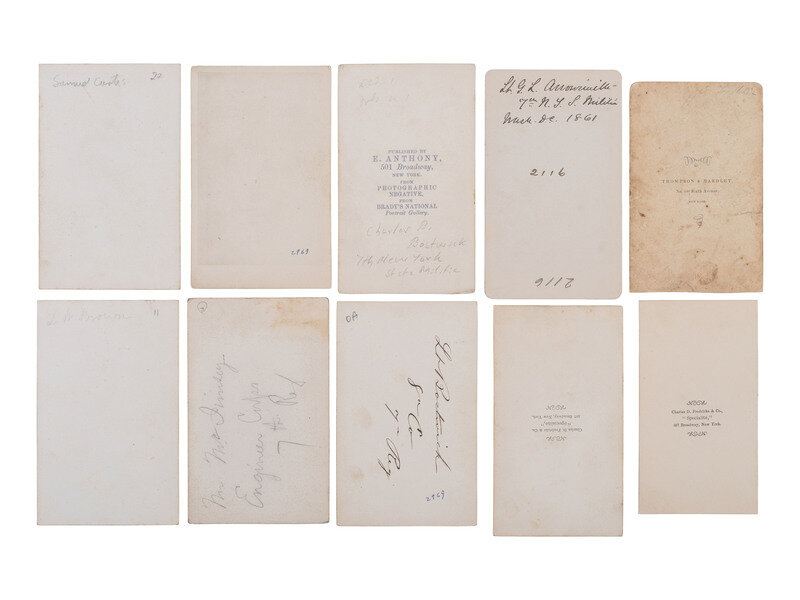 Samuel Curtis
22
2969
PUBLISHED BY
E. ANTHONY,
501 Broadway,
NEW YORK.
FROM
PHOTOGRAPHIC
NEGATIVE,
FROM
BRADY'S NATIONAL
Portrait Gallery.
Charles B.
Bostwick
7th New York
State Militia
Lt G. L.
7th N. Y. S. Militia
Wash. DC. 1861
2116
2116
THOMPSON & BARDLEY
Sixth Avenue,
NEW YORK
Brown
11
Engineer Corps
7th Reg
OA
Lt Bostwick
8th Co
7th Reg
2969
Charles D. Fredricks & Co.,
"Specialité,"
587 Broadway, New York.
Charles D. Fredricks & Co.,
"Specialité,"
587 Broadway, New York.